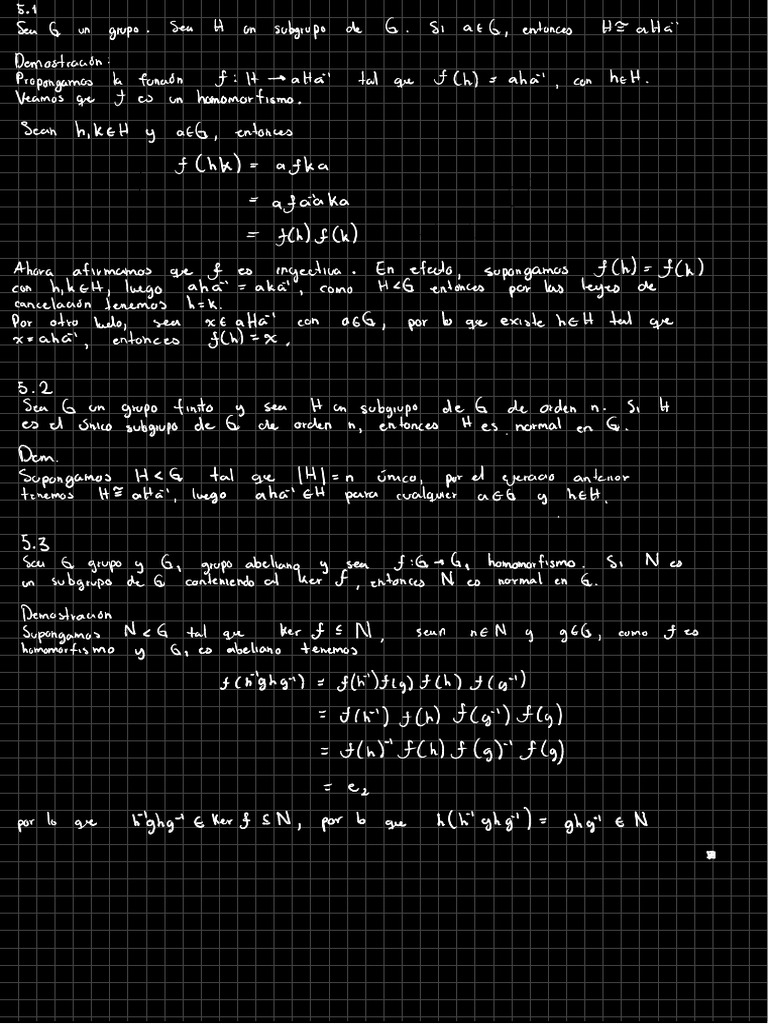 5.1
Sea G un grupo. Sea H un subgrupo de G. Si a∈G, entonces H≅aHa⁻¹
Demostración:
Propongamos la función f: H → aHa⁻¹ tal que f(h) = aha⁻¹, con h∈H.
Veamos que f es un homomorfismo.
Sean h,k∈H y a∈G, entonces
f(hk) = afka
= afa⁻¹aka
= f(h)f(k)
Ahora afirmamos que f es inyectiva. En efecto, supongamos f(h) = f(k)
con h,k∈H, luego aha⁻¹ = aka⁻¹, como H<G entonces por las leyes de
cancelación tenemos h=k.
Por otro lado, sea x∈aHa⁻¹ con a∈G, por lo que existe h∈H tal que
x=aha⁻¹, entonces f(h)=x.
5.2
Sea G un grupo finito y sea H un subgrupo de G de orden n. Si H
es el único subgrupo de G de orden n, entonces H es normal en G.
Dem.
Supongamos H<G tal que |H|=n único, por el ejercicio anterior
tenemos H≅aHa⁻¹, luego aha⁻¹∈H para cualquier a∈G y h∈H.
5.3
Sea G grupo y G₁ grupo abeliano y sea f:G→G₁ homomorfismo. Si N es
un subgrupo de G conteniendo al Ker f, entonces N es normal en G.
Demostración
Supongamos N<G tal que Ker f ≤ N, sean n∈N y g∈G, como f es
homomorfismo y G₁ es abeliano tenemos
f(h⁻¹ghg⁻¹) = f(h⁻¹)f(g)f(h)f(g⁻¹)
= f(h⁻¹)f(h)f(g⁻¹)f(g)
= f(h)⁻¹f(h)f(g)⁻¹f(g)
= e₂
por lo que h⁻¹ghg⁻¹ ∈ Ker f ≤ N, por lo que h(h⁻¹ghg⁻¹) = ghg⁻¹ ∈ N